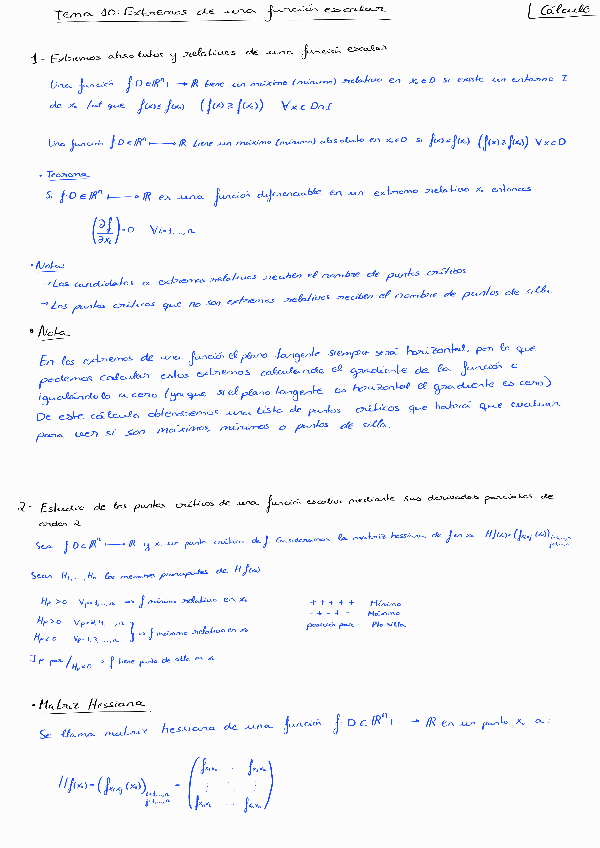 Tema 10: Extremos de una función escalar
Cálculo
1- Extremos absolutos y relativos de una función escalar
Una función f D∈ℝⁿ → ℝ tiene un máximo (mínimo) relativo en x₀∈D si existe un entorno I
de x₀ tal que f(x)≤f(x₀) (f(x)≥f(x₀)) ∀x∈D∩I
Una función f D∈ℝⁿ ⟼ ℝ tiene un máximo (mínimo) absoluto en x₀∈D si f(x)≤f(x₀) (f(x)≥f(x₀)) ∀x∈D
• Teorema
Si f: D∈ℝⁿ ⟼ ℝ es una función diferenciable en un extremo relativo x₀ entonces
(∂f/∂xᵢ)=0 ∀i=1,...,n
• Nota:
→ Los candidatos a extremos relativos reciben el nombre de puntos críticos
→ Los puntos críticos que no son extremos relativos reciben el nombre de puntos de silla
• Nota
En los extremos de una función el plano tangente siempre será horizontal, por lo que
podemos calcular estos extremos calculando el gradiente de la función e
igualándolo a cero (ya que si el plano tangente es horizontal el gradiente es cero)
De este cálculo obtendremos una lista de puntos críticos que habrá que evaluar
para ver si son máximos, mínimos o puntos de silla.
2- Estudio de los puntos críticos de una función escalar mediante sus derivadas parciales de
orden 2
Sea f D⊂ℝⁿ ⟼ ℝ y x₀ un punto crítico de f. Consideramos la matriz hessiana de f en x₀ Hf(x₀)=(fₓᵢₓⱼ(x₀)) i=1,...,n j=1,...,n
Sean H₁,...,Hₙ los menores principales de Hf(x₀)
Hₚ>0 ∀p=1,...,n ⇒ f mínimo relativo en x₀
+ + + + + Mínimo
Hₚ>0 ∀p=2,4,...,n
- + - + - Máximo
Hₚ<0 ∀p=1,3,...,n } ⇒ f máximo relativo en x₀
posición par Pto silla
∃p par / Hₚ<0 ⇒ f tiene punto de silla en x₀
• Matriz Hessiana
Se llama matriz hessiana de una función f: D⊂ℝⁿ ⟼ ℝ en un punto x₀ a:
Hf(x₀)=(fₓᵢₓⱼ(x₀)) i=1,...,n j=1,...,n = (fₓ₁ₓ₁ ... fₓ₁ₓₙ
⋮ ⋮ ⋮
fₓₙₓ₁ ... fₓₙₓₙ)